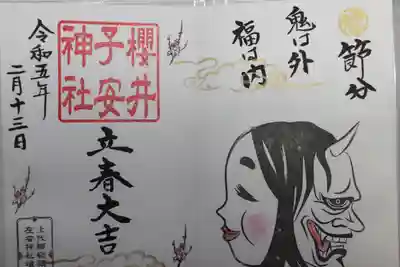 節分
鬼は外
福は内
櫻井
子安
神社
立春大吉
令和五年
二月十三日